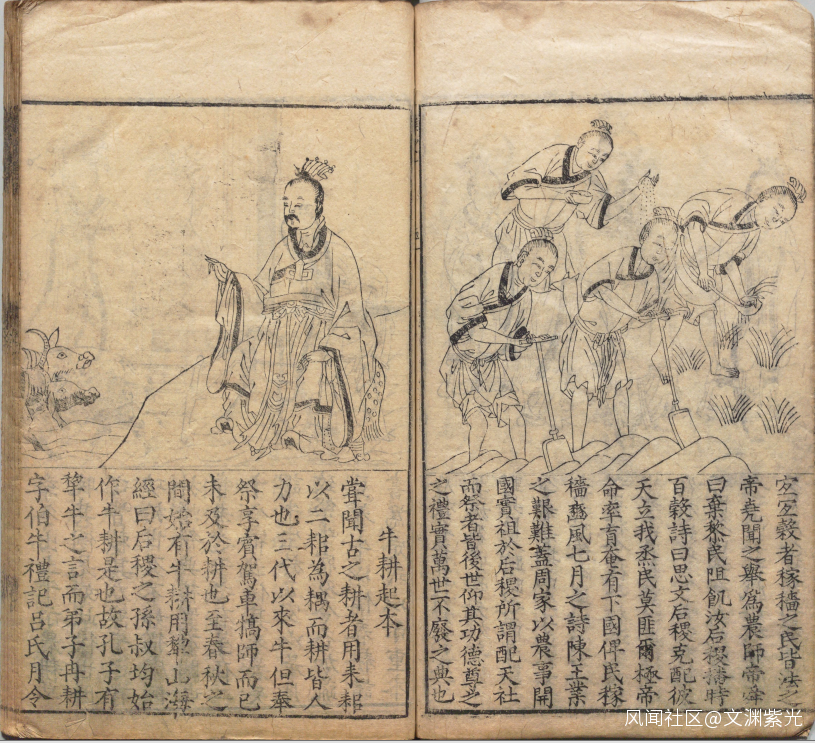 宐宐穀者稼穡之民皆法之
帝堯聞之舉為農師帝舜
曰棄黎民阻飢汝后稷播時
百穀詩曰思文后稷克配彼
天立我烝民莫匪爾極帝
命率育奄有下國俾民稼
穡豳風七月之詩陳王業
之艱難蓋周家以農事開
國實祖於后稷所謂配天社
而祭者皆後世仰其功德尊之
之禮實萬世不廢之典也
牛耕起本
嘗聞古之耕者用耒耜
以二耜為耦而耕皆人
力也三代以來牛但奉
祭享賓駕車犒師而已
未及於耕也至春秋之
間始有牛耕用犂山海
經曰后稷之孫叔均始
作牛耕是也故孔子有
犂牛之言而弟子冉耕
字伯牛禮記吕氏月令
风闻社区@文渊紫光